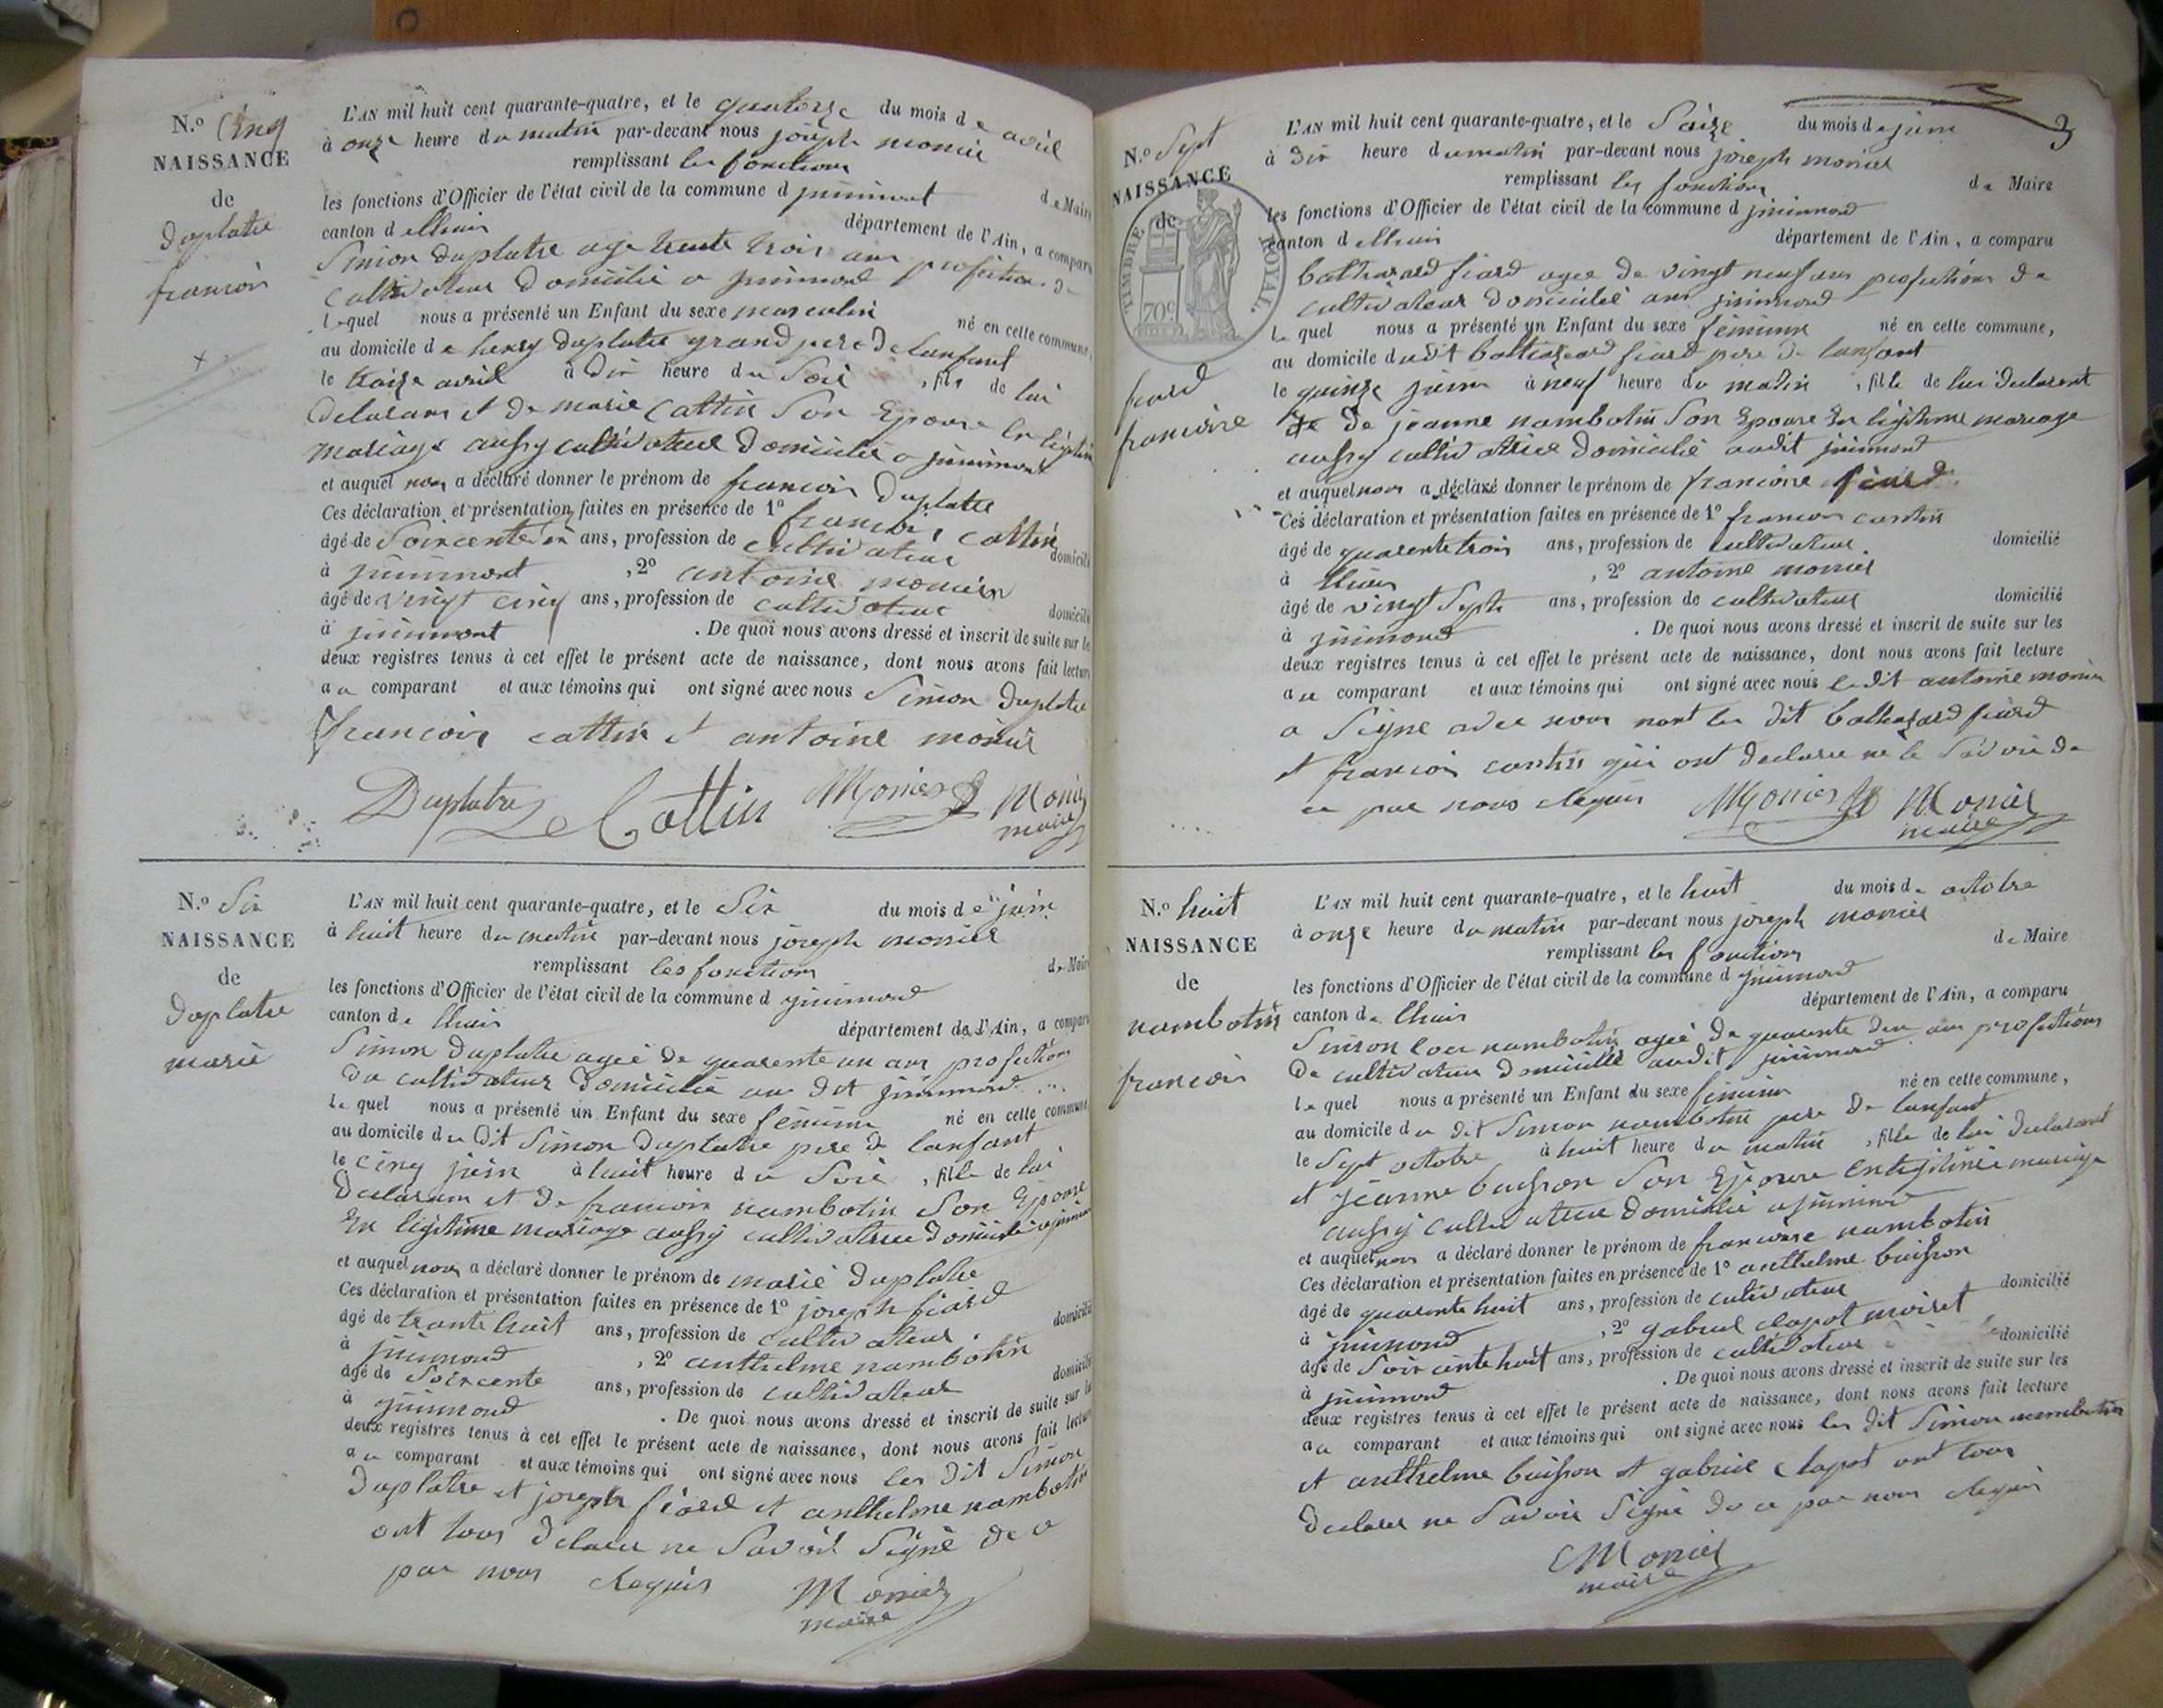 N.o Cinq
NAISSANCE
de
Duplatre
francois
L'AN mil huit cent quarante-quatre, et le quatorze du mois de avril
à onze heure du matin par-devant nous joseph monier
remplissant les fonctions de Maire
les fonctions d'Officier de l'état civil de la commune d jujurieux
canton d
département de l'Ain, a comparu
Simon duplatre age trente trois ans profection de
cultivateur domicilié a
lequel nous a présenté un Enfant du sexe masculin né en cette commune,
au domicile de henry duplatre grand pere de lanfant
le traize avril à dix heure du Soir, fils de lui
declarant et de marie Cattin Son Epouse En legitime
mariage aussy cultivatrice domicilié a
et auquel nous a déclaré donner le prénom de francois Duplatre
Ces déclaration et présentation faites en présence de 1o francois Cattin
âgé de Soixcente six ans, profession de cultivateur domicilié
à , 2o antoine monier
âgé de vingt cinq ans, profession de cultivateur domicilié
à . De quoi nous avons dressé et inscrit de suite sur les
deux registres tenus à cet effet le présent acte de naissance, dont nous avons fait lecture
au comparant et aux témoins qui ont signé avec nous Simon Duplatre
francois cattin et antoine monier
Duplatre Cattin Monier Monier
maire
N.o Six
NAISSANCE
de
Duplatre
marie
L'AN mil huit cent quarante-quatre, et le Six du mois de juin
à huit heure du matin par-devant nous joseph monier
remplissant les fonctions de Maire
les fonctions d'Officier de l'état civil de la commune d
canton de
département de l'Ain, a comparu
Simon Duplatre ageé de quarente un ans profection
de cultivateur domicilié au dit
lequel nous a présenté un Enfant du sexe féminin né en cette commune
au domicile du Dit Simon Duplatre pere de lanfant
le Cinq juin à huit heure du Soir, fille de lui
Declarant et de francoise nambotin Son Epouse
En legitime mariage aussy cultivatrice domicilié
et auquel nous a déclaré donner le prénom de marie Duplatre
Ces déclaration et présentation faites en présence de 1o joseph fiard
âgé de trante huit ans, profession de cultivateur domicilié
à , 2o anthelme nambotin
âgé de Soixcente ans, profession de cultivateur domicilié
à . De quoi nous avons dressé et inscrit de suite sur les
deux registres tenus à cet effet le présent acte de naissance, dont nous avons fait lecture
au comparant et aux témoins qui ont signé avec nous les dit Simon
Duplatre et joseph fiard et anthelme nambotin
ont tous Declaré ne Savoir Signé de ce
par nous Requis Monier
maire
3
N.o Sept
NAISSANCE
de
TIMBRE ROYAL
70c
fiard
francoise
L'AN mil huit cent quarante-quatre, et le Saize du mois de juin
à dix heure du matin par-devant nous joseph monier
remplissant les fonctions de Maire
les fonctions d'Officier de l'état civil de la commune d
canton d
département de l'Ain, a comparu
balthazard fiard agee de vingt neuf ans profections de
cultivateur domicilié
le quel nous a présenté un Enfant du sexe féminin né en cette commune,
au domicile dudit balthazard fiard pere de lanfant
le quinze juin à neuf heure du matin, fille de lui Declarent
et de jeanne nambotin Son Epouse En legitime mariage
aussy cultivatrice domicilié audit
et auquel nous a déclaré donner le prénom de francoise fiard
Ces déclaration et présentation faites en présence de 1o francois
âgé de quarente trois ans, profession de cultivateur domicilié
à , 2o antoine monier
âgé de vingt Sept ans, profession de cultivateur domicilié
à . De quoi nous avons dressé et inscrit de suite sur les
deux registres tenus à cet effet le présent acte de naissance, dont nous avons fait lecture
au comparant et aux témoins qui ont signé avec nous le dit antoine monier
a Signe avec nous nont les dit balthazard fiard
et francois qui ont declare ne le Savoir de
ce par nous Requis Monier Monier
maire
N.o huit
NAISSANCE
de
nambotin
francois
L'AN mil huit cent quarante-quatre, et le huit du mois de octobre
à onze heure du matin par-devant nous joseph monier
remplissant les fonctions de Maire
les fonctions d'Officier de l'état civil de la commune d
canton de
département de l'Ain, a comparu
Simon nambotin ageé de quarente deux ans profections
de cultivateur domicilié audit
le quel nous a présenté un Enfant du sexe féminin né en cette commune,
au domicile du dit Simon nambotin pere de lanfant
le Sept octobre à huit heure du matin, fille de lui Declarant
et jeanne buisson Son Epouse En legitime mariage
aussy cultivatrice domicilié
et auquel nous a déclaré donner le prénom de francoise nambotin
Ces déclaration et présentation faites en présence de 1o anthelme buisson
âgé de quarente huit ans, profession de cultivateur domicilié
à , 2o gabriel clapot
âgé de Soixcente huit ans, profession de cultivateur domicilié
à . De quoi nous avons dressé et inscrit de suite sur les
deux registres tenus à cet effet le présent acte de naissance, dont nous avons fait lecture
au comparant et aux témoins qui ont signé avec nous les dit Simon nambotin
et anthelme buisson et gabriel clapot ont tous
declaré ne Savoir Signé de ce par nous Requis
Monier
maire